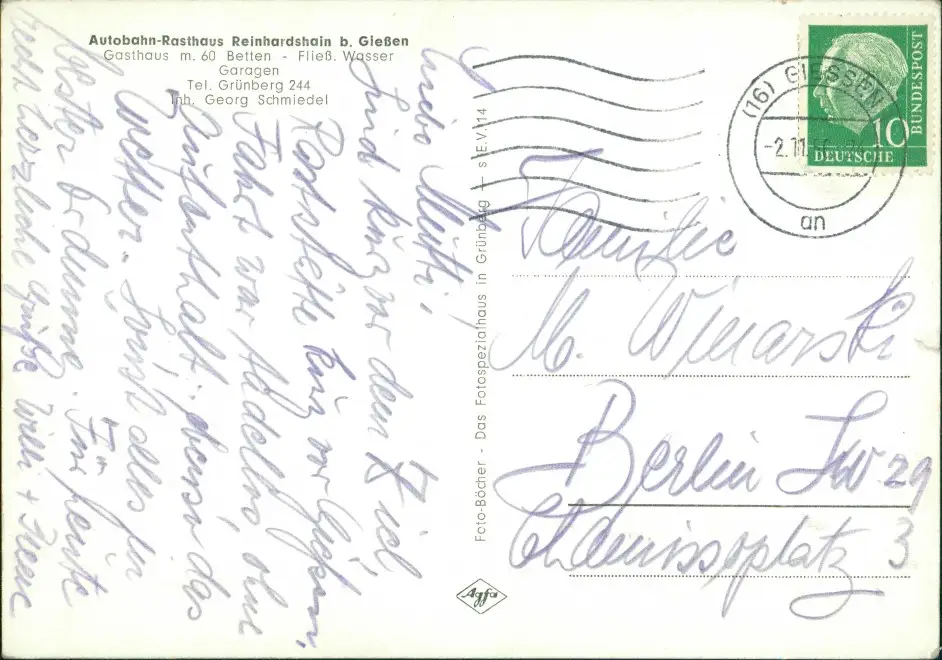 Autobahn-Rasthaus Reinhardshain b. Gießen
Gasthaus m. 60 Betten - Fließ. Wasser
Garagen
Tel. Grünberg 244
Inh. Georg Schmiedel
Liebe Mutti,
Sind kurz vor dem Ziel
Raststätte kurz vor Gießen,
Fahrt war tadellos ohne
Aufenthalt. ebenso das
Wetter. Sonst alles in
bester Ordnung. Für heute
recht herzliche Grüße Willi +
Foto-Böcher - Das Fotospezialhaus in Grünberg — s E.V. 14
Agfa
(16) GIESSEN
-2.11.
an
10
DEUTSCHE
BUNDESPOST
Familie
M. Winarski
Berlin SW 29
Chamissoplatz 3